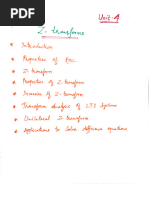 Unit-4
Z-transforms
* Introduction
* Properties of
* Z-transform
* Properties of Z-transform
* Inversion of Z-transform
* Transform Analysis of LTI Systems
* Unilateral Z-transform
* Applications to Solve difference equations